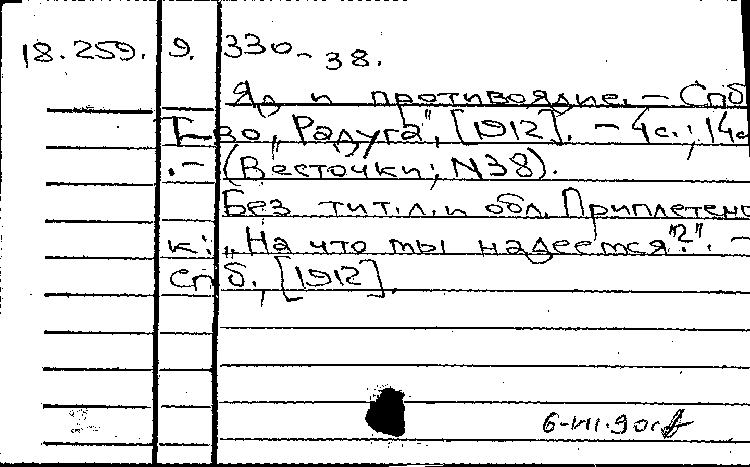 18.259. 9. 330-38.
Яд и противоядие. - Спб
Т-во „Радуга", [1912]. - 4с.; 14с
. - (Весточки; N38).
Без тит. л. и обл. Приплетено
к: „На что ты надеешся"?". -
Спб., [1912].
6-VII.90г.